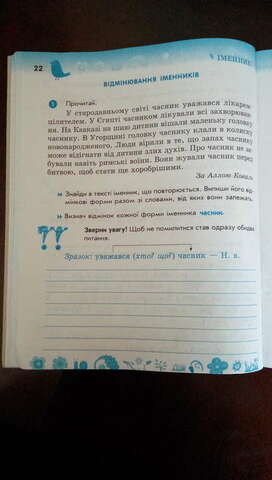 22
ІМЕННИК
ВІДМІНЮВАННЯ ІМЕННИКІВ
1 Прочитай.
У стародавньому світі часник уважався лікарем-
цілителем. У Єгипті часником лікували всі захворюван-
ня. На Кавказі на шию дитини вішали маленьку головку
часнику. В Угорщині головку часнику клали в коляску
новонародженого. Люди вірили в те, що запах часнику
може відігнати від дитини злих духів. Про часник не за-
бували навіть римські воїни. Вони жували часник перед
битвою, щоб стати ще хоробрішими.
За Аллою Коваль
Знайди в тексті іменник, що повторюється. Випиши його від-
мінкові форми разом зі словами, від яких вони залежать.
Визнач відмінок кожної форми іменника часник.
?? Зверни увагу! Щоб не помилитися став одразу обидва
питання.
Зразок: уважався (хто? що?) часник — Н. в.